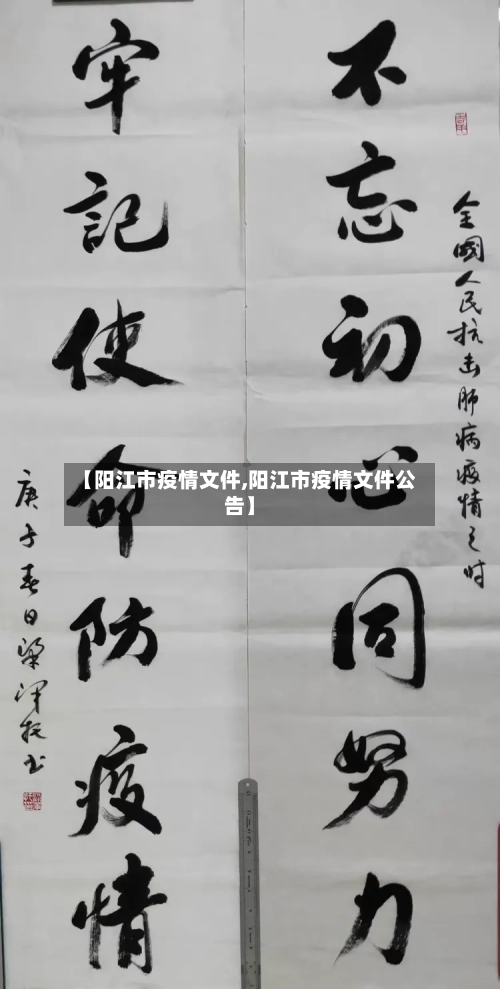 全國人民抗击肺病疫情之时
不忘初心同努力
牢記使命防疫情
庚子春日梁
书
【阳江市疫情文件,阳江市疫情文件公
告】